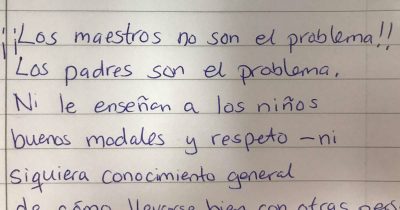 ¡¡Los maestros no son el problema!!
Los padres son el problema.
Ni le enseñan a los niños
buenos modales y respeto – ni
siquiera conocimiento general
de cómo llevarse bien con otras